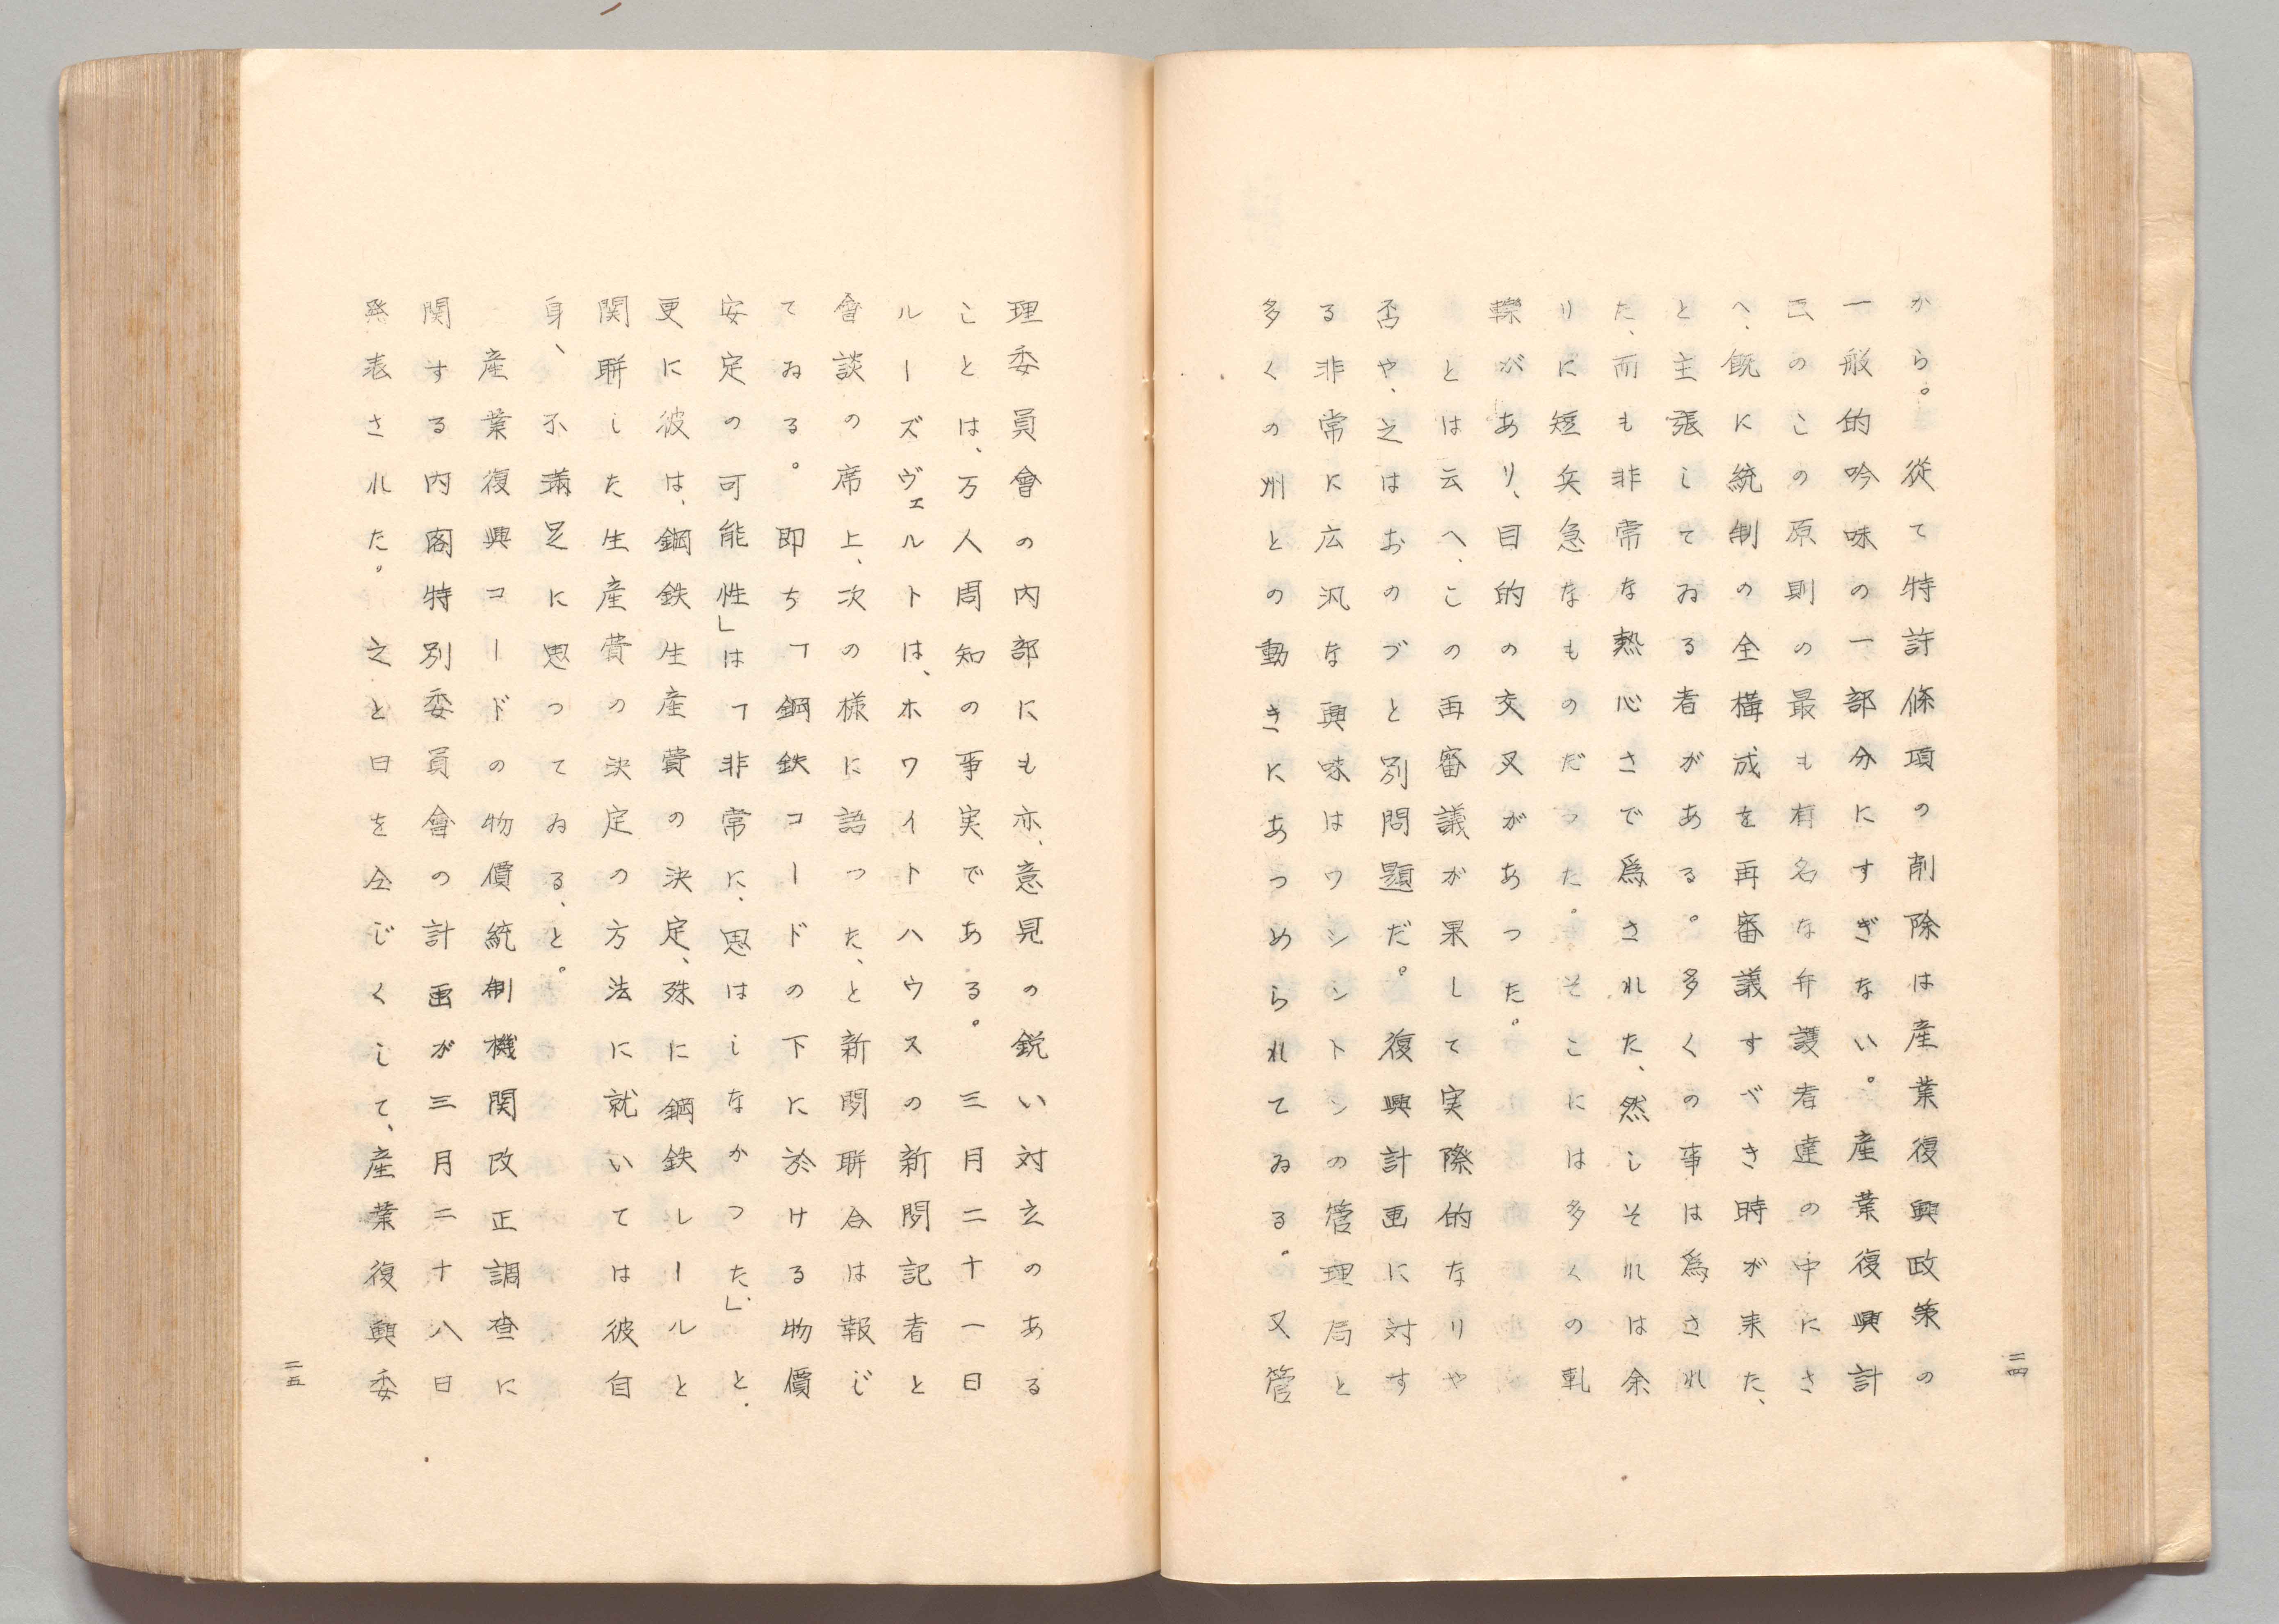 から。従て特許條項の削除は産業復興政策の
一般的吟味の一部分にすぎない。産業復興計
画のこの原則の最も有名な弁護者達の中にさ
へ、既に統制の全構成を再審議すべき時が来た、
と主張してゐる者がある。多くの事は爲され
た、而も非常な熱心さで爲された、然しそれは余
りに短兵急なものだった。そこには多くの軋
轢があり、目的の交叉があった。
とは云へ、この再審議が果して実際的なりや
否や、之はおのづと別問題だ。復興計画に対す
る非常に広汎な興味はワシントンの管理局と
多くの州との動きにあつめられてゐる。又管
二四
理委員會の内部にも亦、意見の鋭い対立のある
ことは、万人周知の事実である。三月二十一日
ルーズヴェルトは、ホワイトハウスの新聞記者と
會談の席上、次の様に語った、と新聞聯合は報じ
てゐる。即ち「鋼鉄コードの下に於ける物價
安定の可能性」は「非常に、思はしなかった、」と.
更に彼は、鋼鉄生産費の決定、殊に鋼鉄レールと
関聯した生産費の決定の方法に就いては彼自
身、不満足に思ってゐる、と。
産業復興コードの物價統制機関改正調査に
関する内閣特別委員會の計画が三月二十八日
発表された。之と日を仝じくして、産業復興委
二五